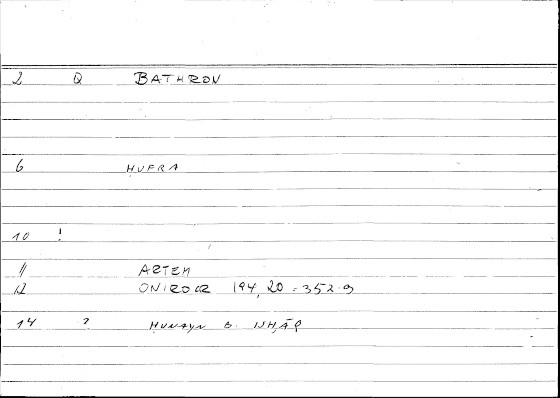 2 Q BATHRON
6 ḤUFRA
10 !
11 ARTEM
12 ONIROCR 194, 20 = 352.9
14 ? ḤUNAYN B. ISḤĀQ